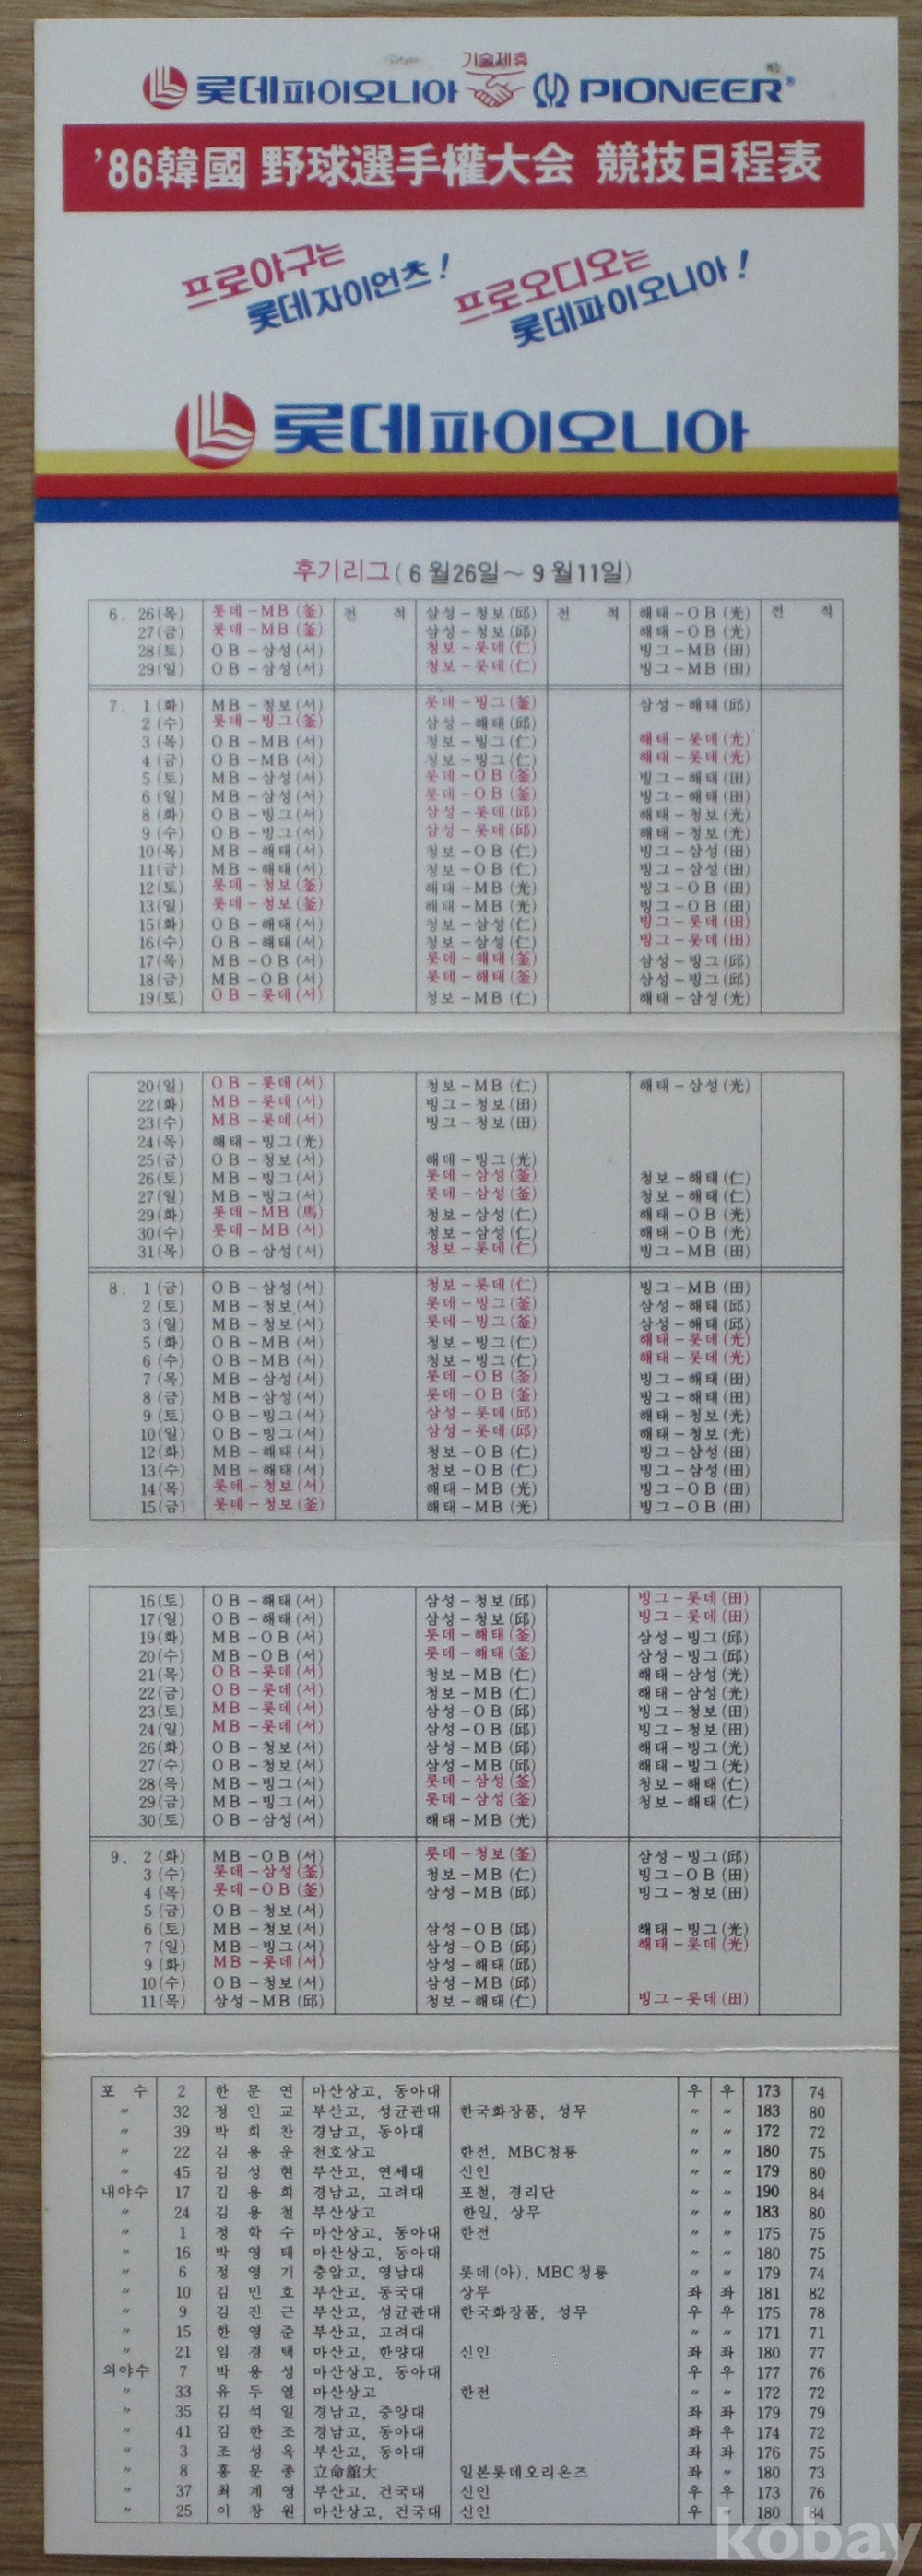 기술제휴
롯데파이오니아 PIONEER®
'86韓國 野球選手權大会 競技日程表
프로야구는 롯데자이언츠!
프로오디오는 롯데파이오니아!
롯데파이오니아
후기리그(6월26일~9월11일)
6. 26(목) 롯데-MB(釜) 전 적 삼성-청보(邱) 전 적 해태-OB(光) 전 적
27(금) 롯데-MB(釜) 삼성-청보(邱) 해태-OB(光)
28(토) OB-삼성(서) 청보-롯데(仁) 빙그-MB(田)
29(일) OB-삼성(서) 청보-롯데(仁) 빙그-MB(田)
7. 1(화) MB-청보(서) 롯데-빙그(釜) 삼성-해태(邱)
2(수) 롯데-빙그(釜) 삼성-해태(邱)
3(목) OB-MB(서) 청보-빙그(仁) 해태-롯데(光)
4(금) OB-MB(서) 청보-빙그(仁) 해태-롯데(光)
5(토) MB-삼성(서) 롯데-OB(釜) 빙그-해태(田)
6(일) MB-삼성(서) 롯데-OB(釜) 빙그-해태(田)
8(화) OB-빙그(서) 삼성-롯데(邱) 해태-청보(光)
9(수) OB-빙그(서) 삼성-롯데(邱) 해태-청보(光)
10(목) MB-해태(서) 청보-OB(仁) 빙그-삼성(田)
11(금) MB-해태(서) 청보-OB(仁) 빙그-삼성(田)
12(토) 롯데-청보(釜) 해태-MB(光) 빙그-OB(田)
13(일) 롯데-청보(釜) 해태-MB(光) 빙그-OB(田)
15(화) OB-해태(서) 청보-삼성(仁) 빙그-롯데(田)
16(수) OB-해태(서) 청보-삼성(仁) 빙그-롯데(田)
17(목) MB-OB(서) 롯데-해태(釜) 삼성-빙그(邱)
18(금) MB-OB(서) 롯데-해태(釜) 삼성-빙그(邱)
19(토) OB-롯데(서) 청보-MB(仁) 해태-삼성(光)
20(일) OB-롯데(서) 청보-MB(仁) 해태-삼성(光)
22(화) MB-롯데(서) 빙그-청보(田)
23(수) MB-롯데(서) 빙그-청보(田)
24(목) 해태-빙그(光)
25(금) OB-청보(서) 해데-빙그(光)
26(토) MB-빙그(서) 롯데-삼성(釜) 청보-해태(仁)
27(일) MB-빙그(서) 롯데-삼성(釜) 청보-해태(仁)
29(화) 롯데-MB(馬) 청보-삼성(仁) 해태-OB(光)
30(수) 롯데-MB(서) 청보-삼성(仁) 해태-OB(光)
31(목) OB-삼성(서) 청보-롯데(仁) 빙그-MB(田)
8. 1(금) OB-삼성(서) 청보-롯데(仁) 빙그-MB(田)
2(토) MB-청보(서) 롯데-빙그(釜) 삼성-해태(邱)
3(일) MB-청보(서) 롯데-빙그(釜) 삼성-해태(邱)
5(화) OB-MB(서) 청보-빙그(仁) 해태-롯데(光)
6(수) OB-MB(서) 청보-빙그(仁) 해태-롯데(光)
7(목) MB-삼성(서) 롯데-OB(釜) 빙그-해태(田)
8(금) MB-삼성(서) 롯데-OB(釜) 빙그-해태(田)
9(토) OB-빙그(서) 삼성-롯데(邱) 해태-청보(光)
10(일) OB-빙그(서) 삼성-롯데(邱) 해태-청보(光)
12(화) MB-해태(서) 청보-OB(仁) 빙그-삼성(田)
13(수) MB-해태(서) 청보-OB(仁) 빙그-삼성(田)
14(목) 롯데-청보(서) 해태-MB(光) 빙그-OB(田)
15(금) 롯데-청보(釜) 해태-MB(光) 빙그-OB(田)
16(토) OB-해태(서) 삼성-청보(邱) 빙그-롯데(田)
17(일) OB-해태(서) 삼성-청보(邱) 빙그-롯데(田)
19(화) MB-OB(서) 롯데-해태(釜) 삼성-빙그(邱)
20(수) MB-OB(서) 롯데-해태(釜) 삼성-빙그(邱)
21(목) OB-롯데(서) 청보-MB(仁) 해태-삼성(光)
22(금) OB-롯데(서) 청보-MB(仁) 해태-삼성(光)
23(토) MB-롯데(서) 삼성-OB(邱) 빙그-청보(田)
24(일) MB-롯데(서) 삼성-OB(邱) 빙그-청보(田)
26(화) OB-청보(서) 삼성-MB(邱) 해태-빙그(光)
27(수) OB-청보(서) 삼성-MB(邱) 해태-빙그(光)
28(목) MB-빙그(서) 롯데-삼성(釜) 청보-해태(仁)
29(금) MB-빙그(서) 롯데-삼성(釜) 청보-해태(仁)
30(토) OB-삼성(서) 해태-MB(光)
9. 2(화) MB-OB(서) 롯데-청보(釜) 삼성-빙그(邱)
3(수) 롯데-삼성(釜) 청보-MB(仁) 빙그-OB(田)
4(목) 롯데-OB(釜) 삼성-MB(邱) 빙그-청보(田)
5(금) OB-청보(서)
6(토) MB-청보(서) 삼성-OB(邱) 해태-빙그(光)
7(일) MB-빙그(서) 삼성-OB(邱) 해태-롯데(光)
9(화) MB-롯데(서) 삼성-해태(邱)
10(수) OB-청보(서) 삼성-MB(邱)
11(목) 삼성-MB(邱) 청보-해태(仁) 빙그-롯데(田)
포 수 2 한문연 마산상고, 동아대 우 우 173 74
〃 32 정인교 부산고, 성균관대 한국화장품, 성무 〃 〃 183 80
〃 39 박회찬 경남고, 동아대 〃 〃 172 72
〃 22 김용운 천호상고 한전, MBC청룡 〃 〃 180 75
〃 45 김성현 부산고, 연세대 신인 〃 〃 179 80
내야수 17 김용희 경남고, 고려대 포철, 경리단 〃 〃 190 84
〃 24 김용철 부산상고 한일, 상무 〃 〃 183 80
〃 1 정학수 마산상고, 동아대 한전 〃 〃 175 75
〃 16 박영태 마산상고, 동아대 〃 〃 180 75
〃 6 정영기 중앙고, 영남대 롯데(아), MBC청룡 〃 〃 179 74
〃 10 김민호 부산고, 동국대 상무 좌 좌 181 82
〃 9 김진근 부산고, 성균관대 한국화장품, 성무 우 우 175 78
〃 15 한영준 부산고, 고려대 〃 〃 171 71
〃 21 임경택 마산고, 한양대 신인 좌 좌 180 77
외야수 7 박용성 마산상고, 동아대 우 우 177 76
〃 33 유두열 마산상고 한전 〃 〃 172 72
〃 35 김석일 경남고, 중앙대 좌 좌 179 79
〃 41 김한조 경남고, 동아대 좌 우 174 72
〃 3 조성옥 부산고, 동아대 좌 좌 176 75
〃 8 홍문종 立命館大 일본롯데오리온즈 좌 〃 180 73
〃 37 최계영 부산고, 건국대 신인 우 우 173 76
〃 25 이창원 마산상고, 건국대 신인 우 〃 180 84
kobay